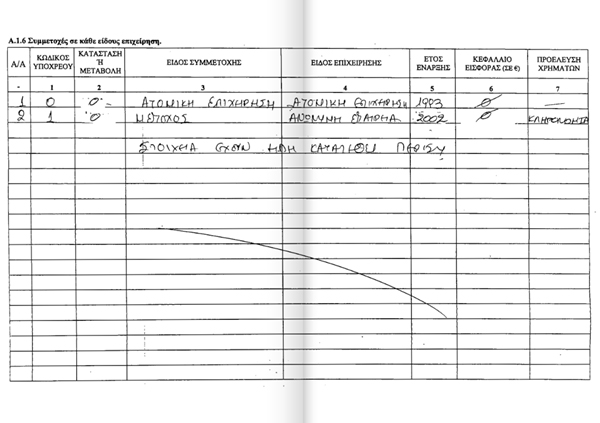 Α.1.6 Συμμετοχές σε κάθε είδους επιχείρηση.
Α/Α ΚΩΔΙΚΟΣ ΥΠΟΧΡΕΟΥ ΚΑΤΑΣΤΑΣΗ Ή ΜΕΤΑΒΟΛΗ ΕΙΔΟΣ ΣΥΜΜΕΤΟΧΗΣ ΕΙΔΟΣ ΕΠΙΧΕΙΡΗΣΗΣ ΕΤΟΣ ΕΝΑΡΞΗΣ ΚΕΦΑΛΑΙΟ ΕΙΣΦΟΡΑΣ (ΣΕ €) ΠΡΟΕΛΕΥΣΗ ΧΡΗΜΑΤΩΝ
- 1 2 3 4 5 6 7
1 0 0 ΑΤΟΜΙΚΗ ΕΠΙΧΗΡΗΣΗ ΑΤΟΜΙΚΗ ΕΠΙΧΗΡΗΣΗ 1993 0 —
2 1 0 ΜΕΤΟΧΟΣ ΑΝΩΝΥΜΗ ΕΤΑΙΡΙΑ 2002 0 ΚΛΗΡΟΝΟΜΙΑ
ΣΤΟΙΧΕΙΑ ΕΧΟΥΝ ΗΔΗ ΚΑΤΑΤΕΘΕΙ ΠΕΡΙΣΥ